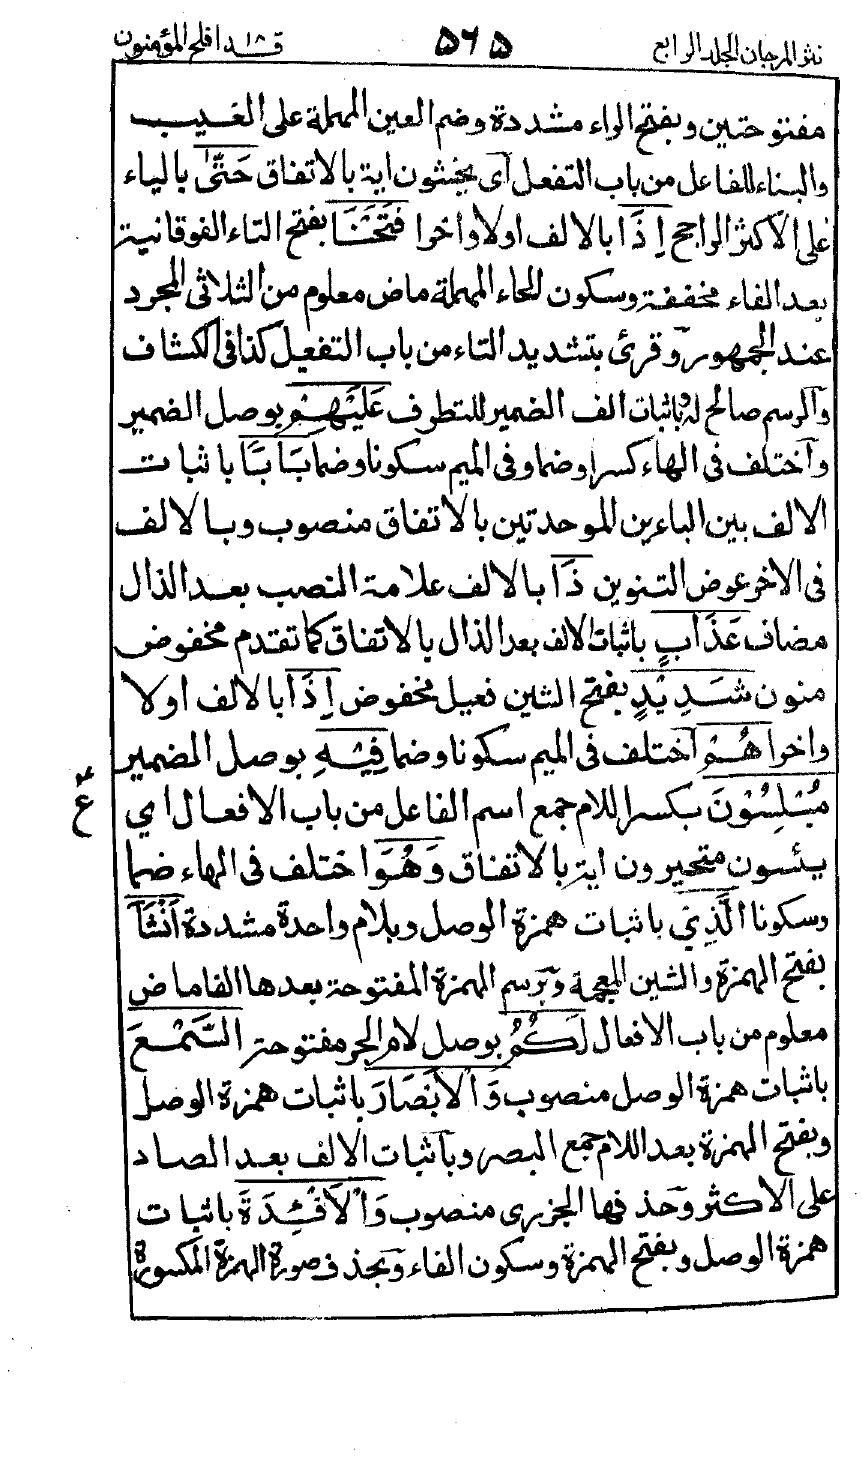 نثر المرجان الجلد الرابع ۵۶۵ قد افلح ۱۸ المؤمنون
مفتوحتين وبفتح الراء مشددة وضم العين المهملة على الغيب
والبناء للفاعل من باب التفعل اى يخبثون اية بالاتفاق حَتّٰى بالياء
على الاكثر الراجح اِذَا بالالف اولا واخرا فَتَحْنَا بفتح التاء الفوقانية
بعد الفاء مخففة وسكون الحاء المهملة ماض معلوم من الثلاثى المجرد
عند الجمهور وقرئ بتشديد التاء من باب التفعيل كذا فى الكشاف
والرسم صالح له باثبات الف الضمير للتطرف عَلَيْهِمْ بوصل الضمير
واختلف فى الهاء كسرا وضما وفى الميم سكونا وضما بَابًا باثبات
الالف بين الباءين الموحدتين بالاتفاق منصوب وبالالف
فى الاخر عوض التنوين ذَا بالالف علامة النصب بعد الذال
مضاف عَذَابٍ باثبات الالف بعد الذال بالاتفاق كما تقدم مخفوض
منون شَدِيْدٍ بفتح الشين فعيل مخفوض اِذَا بالالف اولا
واخرا هُمْ اختلف فى الميم سكونا وضما فِيْهِ بوصل الضمير
مُبْلِسُوْنَ بكسر اللام جمع اسم الفاعل من باب الافعال اي
يئسون متحيرون اية بالاتفاق وَهُوَ اختلف فى الهاء ضما
وسكونا الَّذِيْ باثبات همزة الوصل وبلام واحدة مشددة اَنْشَاَ
بفتح الهمزة والشين المعجمة وبرسم الهمزة المفتوحة بعدها الفا ماض
معلوم من باب الافعال لَكُمُ بوصل لام الجر مفتوحة السَّمْعَ
باثبات همزة الوصل منصوب وَالْاَبْصَارَ باثبات همزة الوصل
وبفتح الهمزة بعد اللام جمع البصر وباثبات الالف بعد الصاد
على الاكثر وحذفها الجزرى منصوب وَالْاَفْئِدَةَ باثبات
همزة الوصل وبفتح الهمزة وسكون الفاء وبحذف صورة الهمزة المكسورة
ع